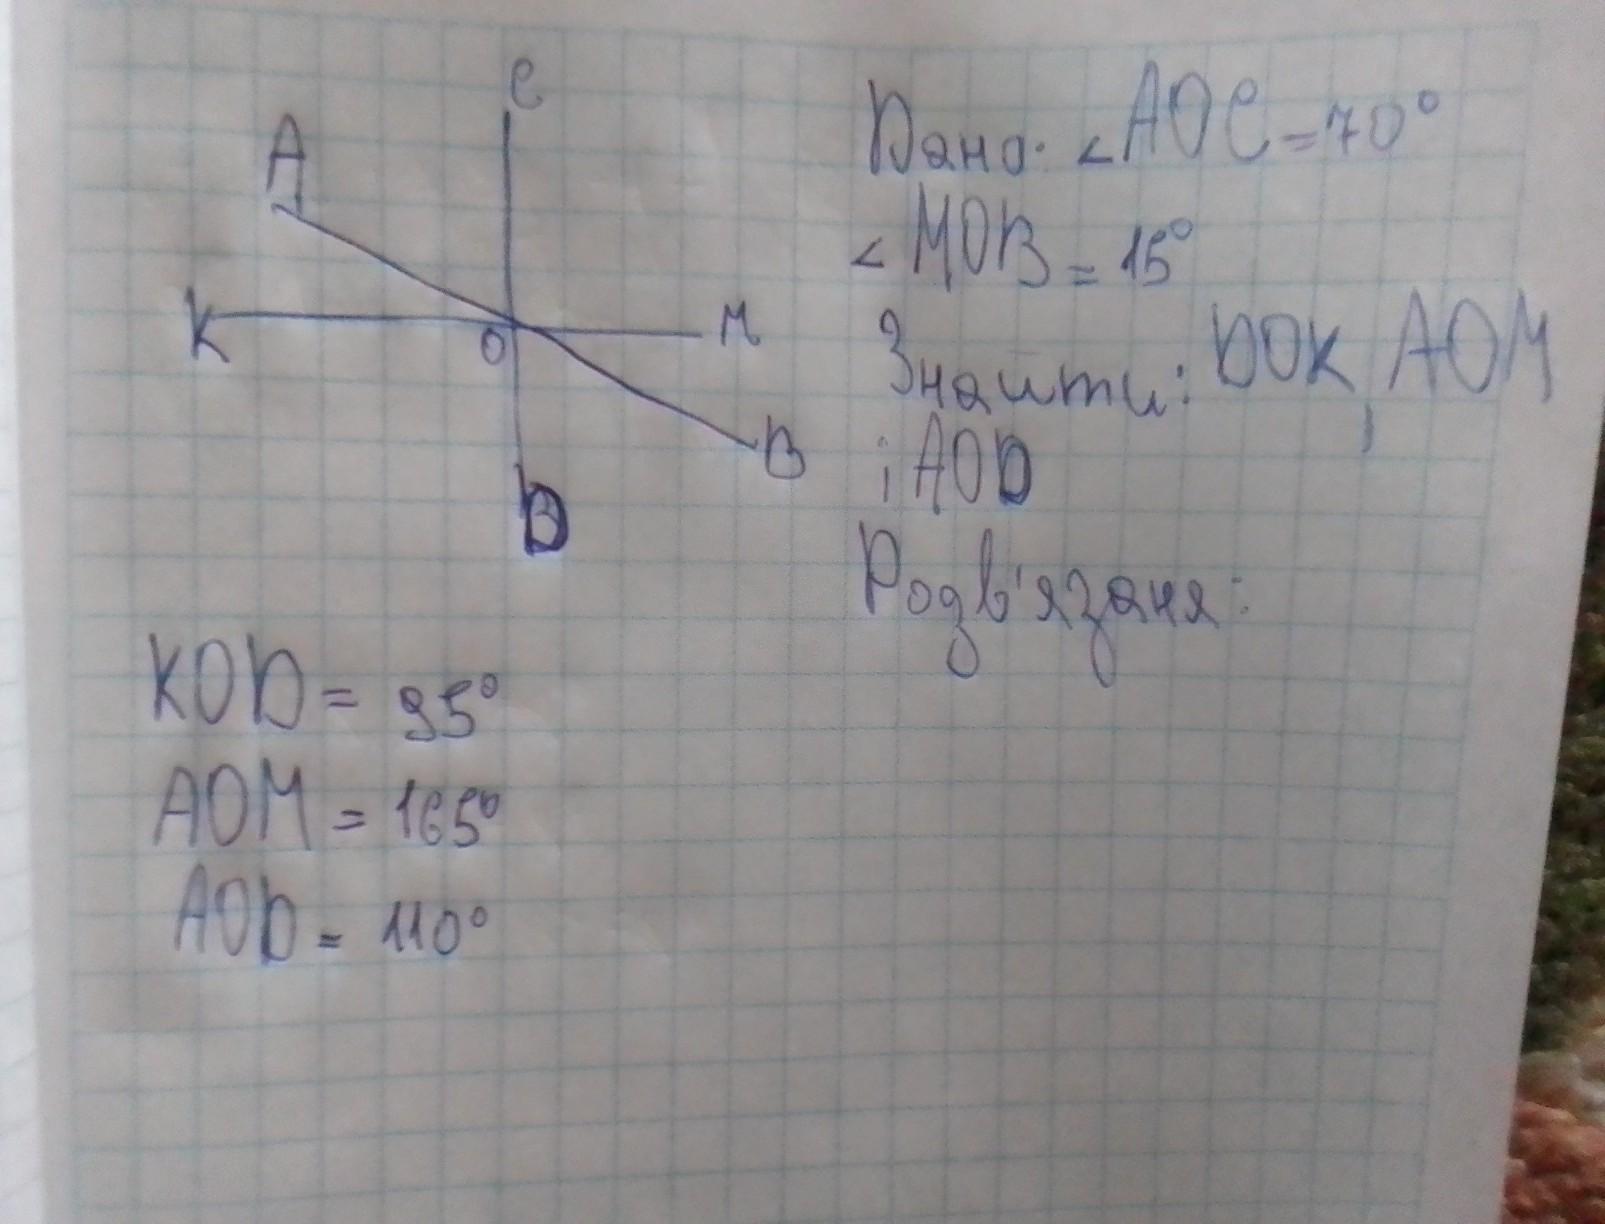 C
A
K
O
M
B
D
Дано: ∠AOC = 70°
∠MOB = 15°
Знайти: DOK, AOM
і AOD
Розв'язаня:
KOD = 95°
AOM = 165°
AOD = 110°